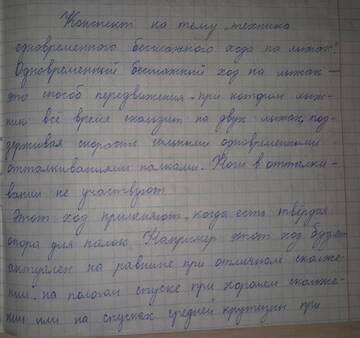 Конспект на тему „техника
одновременного бесшажного хода на лыжах"
Одновременный бесшажный ход на лыжах —
это способ передвижения, при котором лыж-
ник всё время скользит на двух лыжах, под-
держивая скорость сильными одновременными
отталкиваниями палками. Ноги в отталки-
вании не участвуют.
Этот ход применяют, когда есть твёрдая
опора для палок. Например этот ход будет
актуален на равнине при отличном скольже-
нии, на пологом спуске при хорошем скольже-
нии или на спусках средней крутизны при